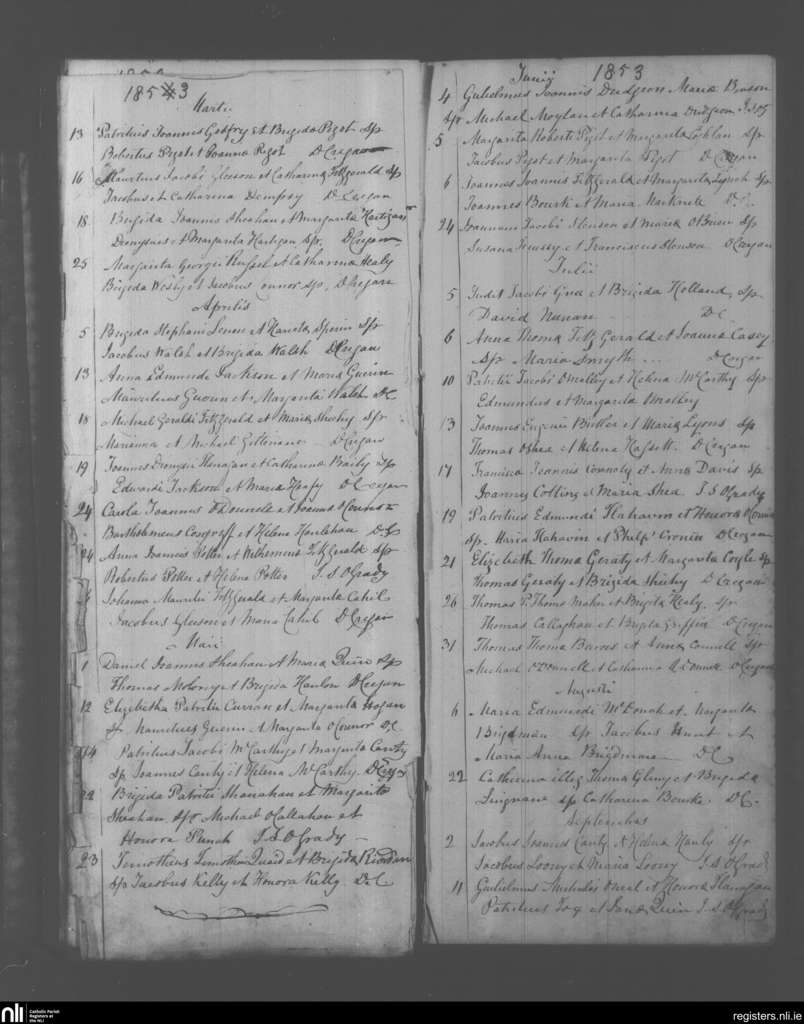 1853
Martii
13 Patritius Joannis Godfry et Brigida Pigot Sp
Robertus Pigot et Joanna Pigot D Cregan
16 Mauritius Jacobi Gleeson et Catharina FitzGerald Sp
Jacobus et Catharina Dempsy D Cregan
18 Brigida Joannis Sheahan et Margarita Hartigan
Dionysius et Margarita Hartigan Sp. D Cregan
25 Margarita Georgii Russel et Catharina Healy
Brigida et Jacobus Connor Sp. D Cregan
Aprilis
5 Brigida Stephani et Sp
Jacobus Walsh et Brigida Walsh D Cregan
13 Anna Edmundi Jackson et Maria Guerin
Mauritius Guerin et Margarita Walsh DC
18 Michael Geraldi FitzGerald et Maria Sheehy Sp
Marianna et Michael D Cregan
19 Joannes Dionysii Flanagan et Catharina Baily Sp
Edwardi Jackson et Maria D Cregan
24 Carola Joannis O'Donnell et Joanna O'Connor
Bartholomeus Cosgriff et Helena Hanlehan DC
24 Anna Joannis Potter et Wilhemina FitzGerald Sp
Robertus Potter et Helena Potter J. S. O'Grady
Johanna Mauritii FitzGerald et Margarita Cahil
Jacobus Gleeson et Maria Cahil D Cregan
Maii
1 Daniel Joannis Sheahan et Maria Quin Sp
Thomas Molony et Brigida Hanlon D Cregan
12 Elizabetha Patritii Curran et Margarita Hogan
Sp Mauritius Guerin et Margarita O'Connor DC
14 Patritius Jacobi McCarthy et Margarita Canty
Sp Joannes Canty et Helena McCarthy D Cregan
22 Brigida Patritii Shanahan et Margarita
Sheahan Sp Michael O'Callahan et
Honora Punch J. S. O'Grady
23 Timotheus Timothei Quaid et Brigida Riordan
Sp Jacobus Kelly et Honora Kelly DC
Junii 1853
4 Gulielmus Joannis Dudgeon Maria Benson
Sp Michael Moylan et Catharina Dudgeon J. S. O'G
5 Margarita Roberti Pigot et Margarita Sp
Jacobus Pigot et Margarita Pigot D Cregan
6 Joannes Joannis FitzGerald et Margarita Lynch Sp
Joannes Bourk et Maria D.C.
24 Joannem Jacobi Stenson et Maria O'Brien Sp
Susana et Franciscus Stenson D Cregan
Julii
5 Judit Jacobi et Brigida Holland, Sp
David Nunan DC
6 Anna Thoma FitzGerald et Joanna Casey
Sp Maria Smyth D Cregan
10 Patritii Jacobi O'Malley et Helena McCarthy Sp
Edmundus et Margarita
13 Joannes Eugenii Butler et Maria Lyons Sp
Thomas O'Shea et Helena Hassett. D Cregan
17 Francisca Joannis Connoly et Anna Davis Sp
Joannes Colling et Maria Shea J. S O'Grady
19 Patritius Edmundi Flahavin et Honora
Sp. Maria Flahavin et Philp' Cronin D Cregan
21 Elizabeth Thoma Geraty et Margarita Coyle Sp
Thomas Geraty et Brigida Sheehy D Cregan
26 Thomas Thoma Mahon et Brigita Healy. Sp
Thomas Callaghan et Brigita Griffin D Cregan
31 Thomas Thoma et Anna Connell Sp
Michael O'Donnell et Catharina O'Donnell D Cregan
Augusti
6 Maria Edmundi McDonah et Margarita
Brigdman Sp Jacobus Hunt et
Maria Anna Brigdman DC
22 Catharina illeg Thoma et Brigida
Sp Catharina Bourke. DC.
Septembris
2 Jacobus Joannis Canty et Helena Hanly Sp
Jacobus Loony et Maria Loony J. S O'Grady
11 Gulielmus Michaelis Oneil et Honora Flanagan
Patritius Fox et Quin J. S O'Grady
nli
Catholic Parish
Registers at
the NLI
registers.nli.ie